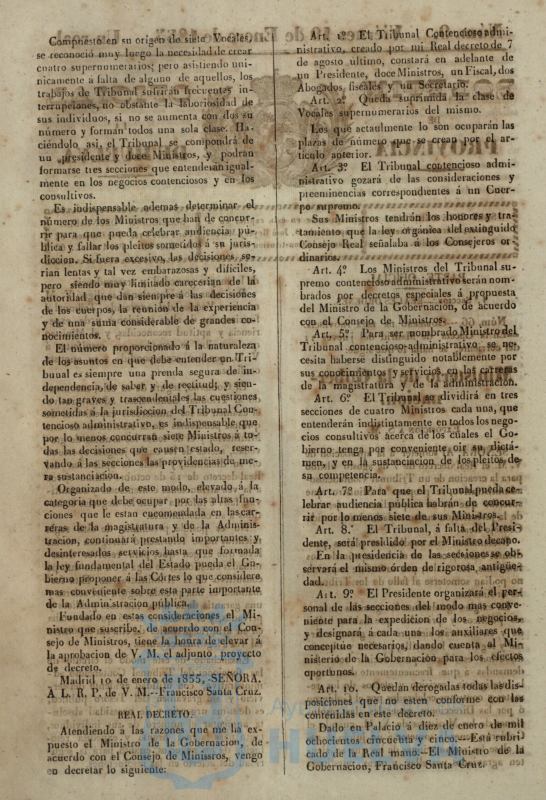 Compuesto en su origen de siete Vocales
se reconoció muy luego la necesidad de crear
cuatro supernumerarios; pero asistiendo uni-
nicamente á falta de alguno de aquellos, los
trabajos de Tribunal sufrirán frecuentes in-
terrupciones, no obstante la laboriosidad de
sus individuos, si no se aumenta con dos su
número y forman todos una sola clase. Ha-
ciéndolo asi, el Tribunal se compondrá de
un presidente y doce Ministros, y podran
formarse tres secciones que entenderan igual-
mente en los negocios contenciosos y en los
consultivos.
Es indispensable ademas determinar el
número de los Ministros que han de concur-
rir para que pueda celebrar audiencia pú-
blica y fallar los pleitos sometidos á su juris-
diccion. Si fuera excesivo, las decisiones se-
rian lentas y tal vez embarazosas y difíciles,
pero siendo muy limitado carecerian de la
autoridad que dan siempre á las decisiones
de los cuerpos, la reunion de la experiencia
y de una suma considerable de grandes co-
nocimientos.
El número proporcionado á la naturaleza
de los asuntos en que debe entender un Tri-
bunal es siempre una prenda segura de in-
dependencia, de saber y de rectitud; y sien-
do tan graves y trascendentales las cuestiones
sometidas á la jurisdiccion del Tribunal Con-
tencioso administrativo, es indispensable que
por lo menos concurran siete Ministros á to-
das las decisiones que causen estado, reser-
vando á las secciones las providencias de me-
ra sustanciacion.
Organizado de este modo, elevado á la
categoria que debe ocupar por las altas fun-
ciones que le estan encomendada en las car-
reras de la magistratura y de la Adminis-
tracion, continuará prestando importantes y
desinteresados servicios hasta que formada
la ley fundamental del Estado pueda el Go-
bierno proponer á las Córtes lo que considere
mas conveniente sobre esta parte importante
de la Administracion pública.
Fundado en estas consideraciones el Mi-
nistro que suscribe, de acuerdo con el Con-
sejo de Ministros, tiene la honra de elevar á
la aprobacion de V. M. el adjunto proyecto
de decreto.
Madrid 10 de enero de 1855.-SEÑORA.
A L. R. P. de V. M.--Francisco Santa Cruz.
REAL DECRETO.
Atendiendo á las razones que me ha ex-
puesto el Ministro de la Gobernacion, de
acuerdo con el Consejo de Minissros, vengo
en decretar lo siguiente:
Art. 1º El Tribunal Contencioso admi-
nistrativo, creado por mi Real decreto de 7
de agosto ultimo, constará en adelante de
un Presidente, doce Ministros, un Fiscal, dos
Abogados fiscales y un Secretario.
Art. 2º Queda suprimida la clase de
Vocales supernumerarios del mismo.
Los que actaulmente lo son ocuparán las
plazas de número que se crean por el ar-
tículo anterior.
Art. 3º El Tribunal contencioso admi-
nistrativo gozará de las consideraciones y
preeminencias correspondientes á un Cuer-
po supremo.
Sus Ministros tendrán los honores y tra-
tamiento que la ley orgánica del extinguido
Consejo Real señalaba á los Consejeros or-
dinarios.
Art. 4º Los Ministros del Tribunal su-
premo contencioso administrativo serán nom-
brados por decretos especiales á propuesta
del Ministro de la Gobernacion, de acuerdo
con el Consejo de Ministros.
Art. 5º Para ser nombrado Ministro del
Tribunal contencioso-administrativo se ne-
cesita haberse distinguido notablemente por
sus conocimientos y servicios en las carreras
de la magistratura y de la administracion.
Art. 6º El Tribunal se dividirá en tres
secciones de cuatro Ministros cada una, que
entenderán indistintamente en todos los nego-
cios consultivos acerca de los cuales el Go-
bierno tenga por conveniente oir su dictá-
men, y en la sustanciacion de los pleitos de
sn competencia.
Art. 7º Para que el Tribunal pueda ce-
lebrar audiencia pública habrán de concur-
rir por lo menos siete de sus Ministros.
Art. 8.º El Tribunal, á falta del Presi-
dente, será presidido por el Ministro decano.
En la presidencia de las secciones se ob-
servará el mismo órden de rigorosa antigüe-
dad.
Art. 9º El Presidente organizará el per-
sonal de las secciones del modo mas conve-
niente para la expedicion de los negocios,
y designará á cada una los auxiliares que
conceptúe necesarios, dando cuenta al Mi-
nisterio de la Gobernacion para los efectos
oportunos.
Art. 10. Quedan derogadas todas las dis-
posiciones que no esten conforme con las
contenidas en este decreto.
Dado en Palacio á diez de enero de mil
ochocientos cincuenta y cinco.--Está rubri
cado de la Real mano.--El Ministro de la
Gobernacion, Francisco Santa Cruz.